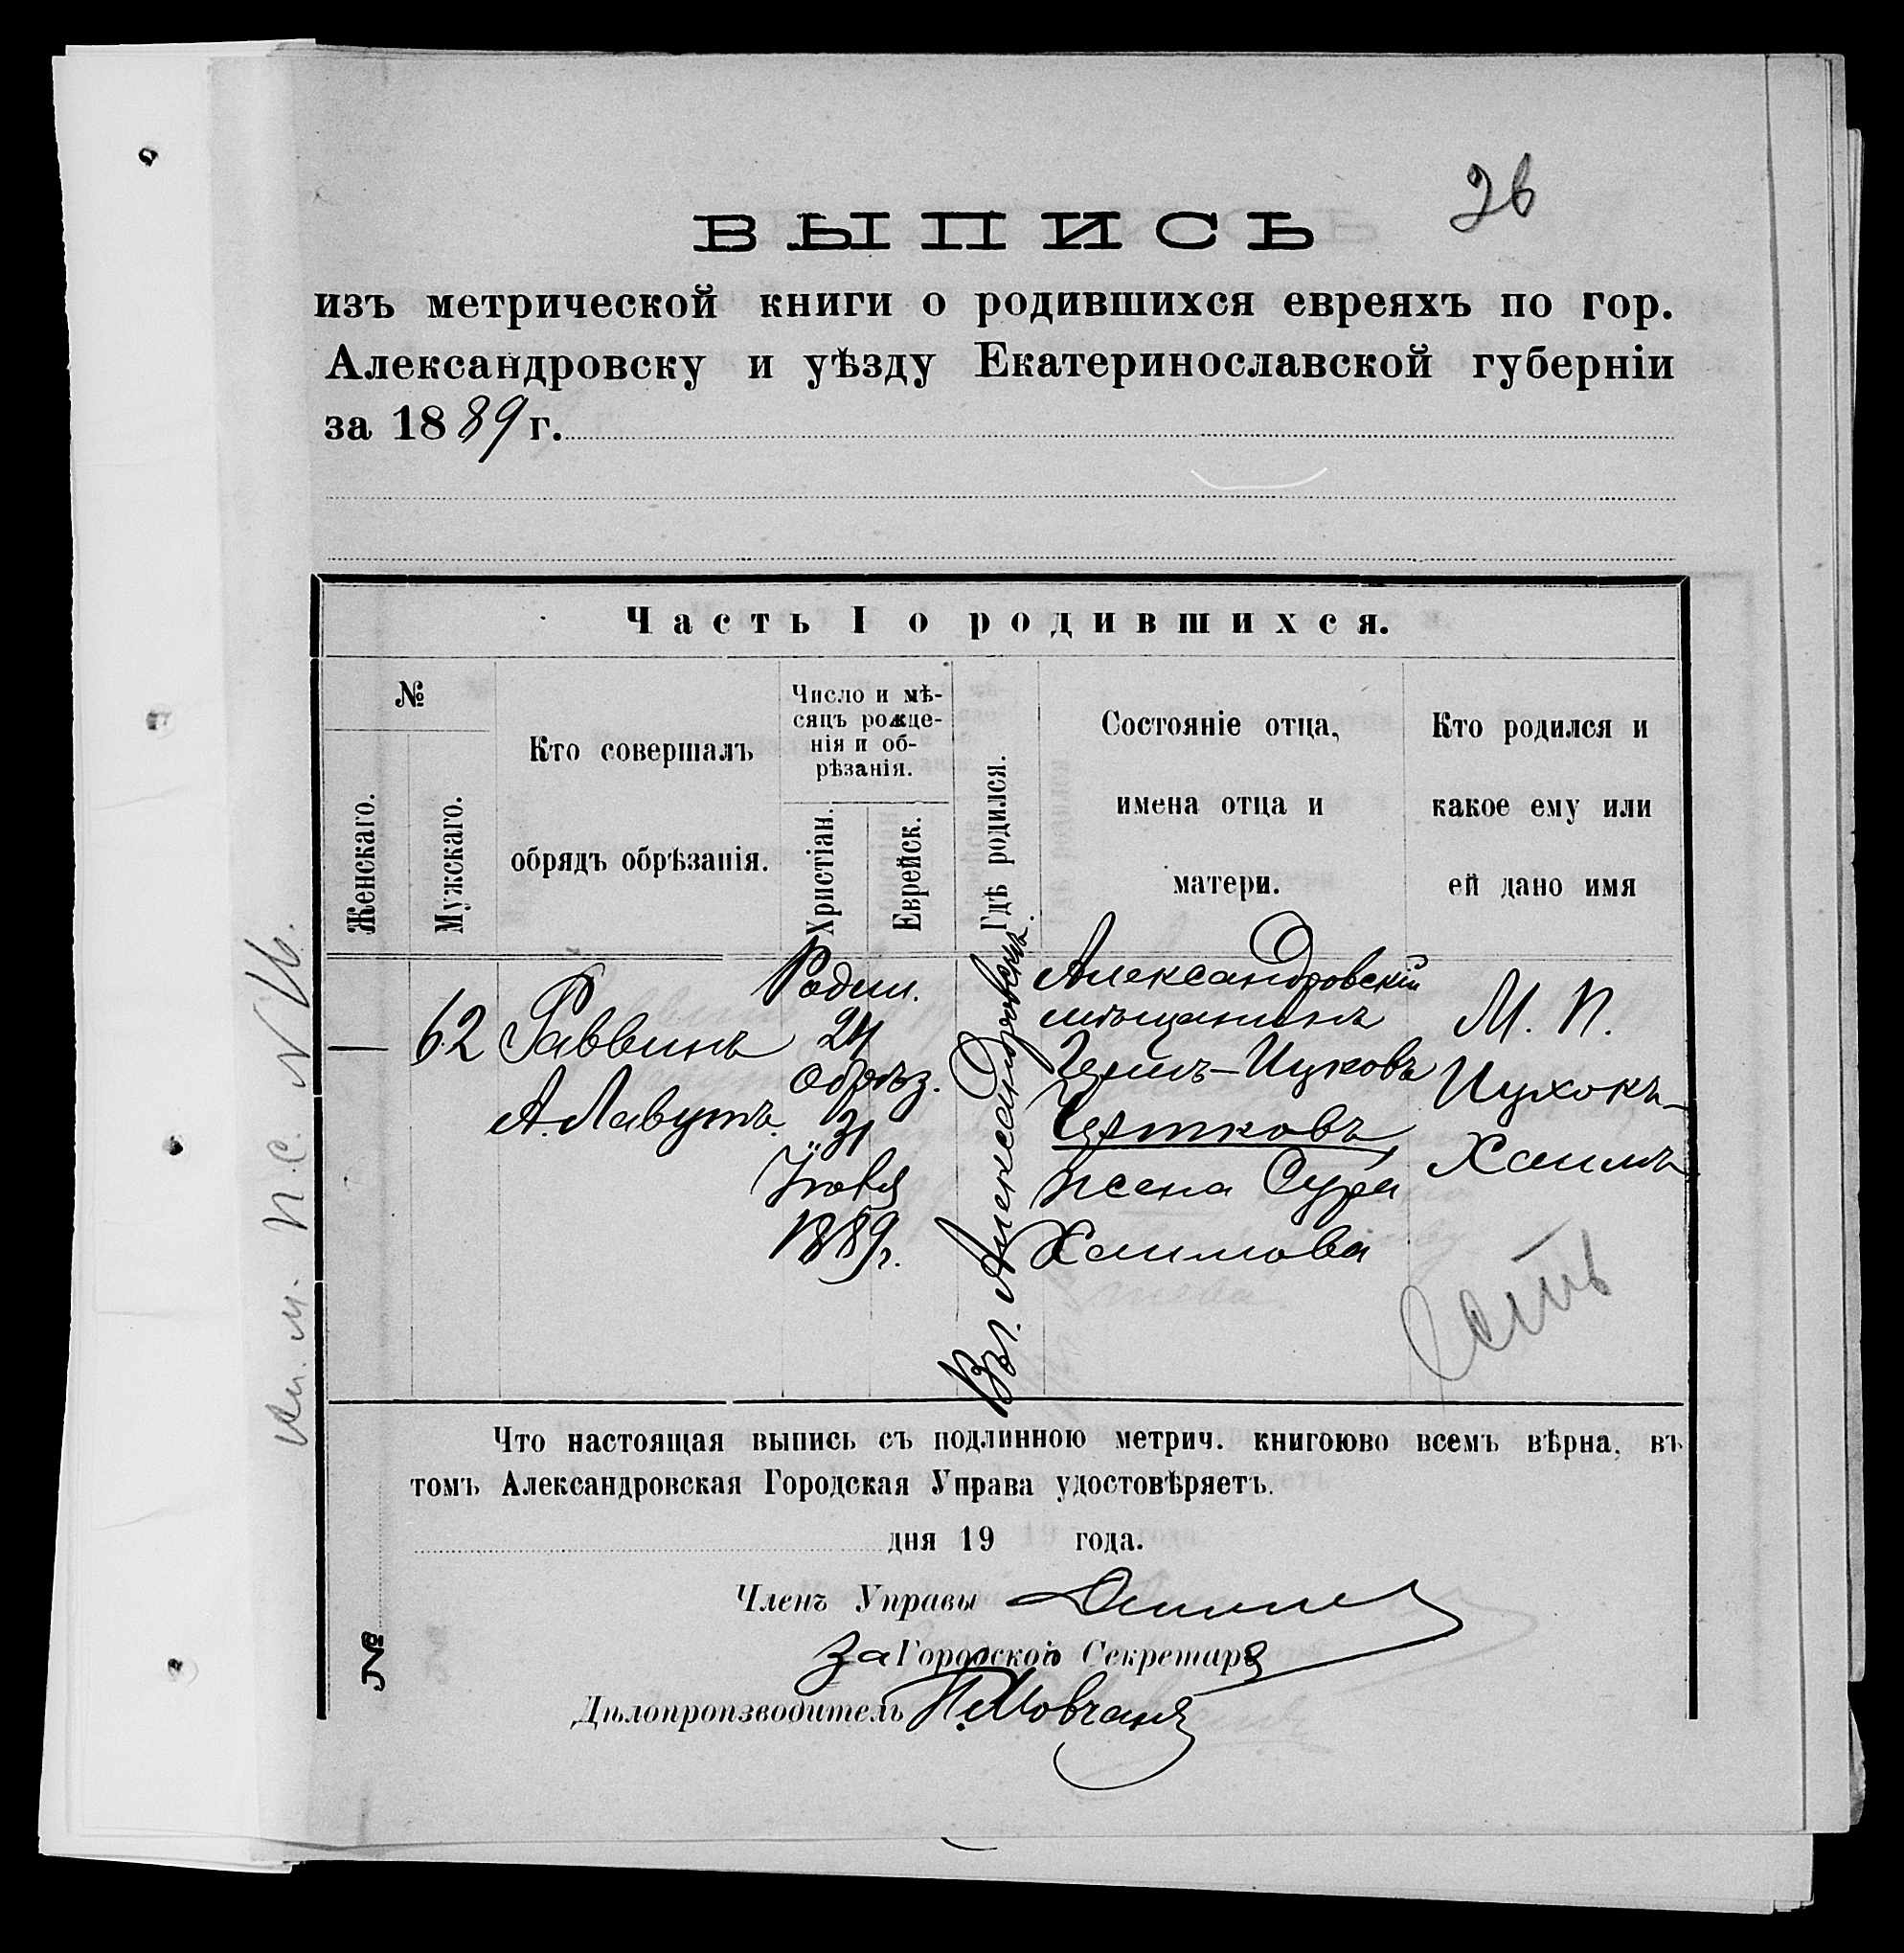 26
ВЫПИСЬ
изъ метрической книги о родившихся евреяхъ по гор.
Александровску и уѣзду Екатеринославской губерніи
за 1889 г.
Часть I о родившихся.
№
Женскаго.
Мужскаго.
Кто совершалъ
обрядъ обрѣзанія.
Число и мѣ-
сяцъ рожде-
нія и об-
рѣзанія.
Христіан.
Еврейск.
Гдѣ родился.
Состояніе отца,
имена отца и
матери.
Кто родился и
какое ему или
ей дано имя
—
62
Раввинъ
А. Лавутъ.
Родил.
24
Обрѣз.
31
1889 г.
Въ г. Александровскѣ.
Александровскій
мѣщанинъ
Ицковъ
Цетковъ,
жена Сура
Хаимова
М. П.
Ицхокъ-
Хаимъ
Есть
Что настоящая выпись съ подлинною метрич. книгоюво всемъ вѣрна, въ
томъ Александровская Городская Управа удостовѣряетъ.
дня 19 года.
Членъ Управы
За Городской Секретаря
Дѣлопроизводитель П. Мовчанъ
№